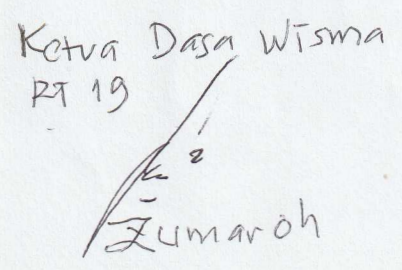 Ketua Dasa Wisma
RT 19
Zumaroh